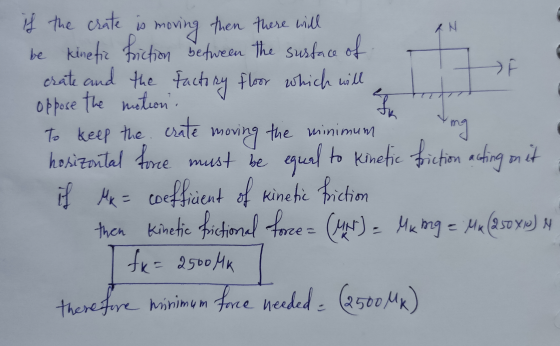 if the crate is moving then there will
be kinetic friction between the surface of
crate and the factory floor which will
oppose the motion.
To keep the crate moving the minimum
horizontal force must be equal to kinetic friction acting on it
if μk = coefficient of kinetic friction
then kinetic frictional force = (μkN) = μk mg = μk (250×10) N
fk = 2500 μk
therefore minimum force needed = (2500 μk)
N
F
fk
mg